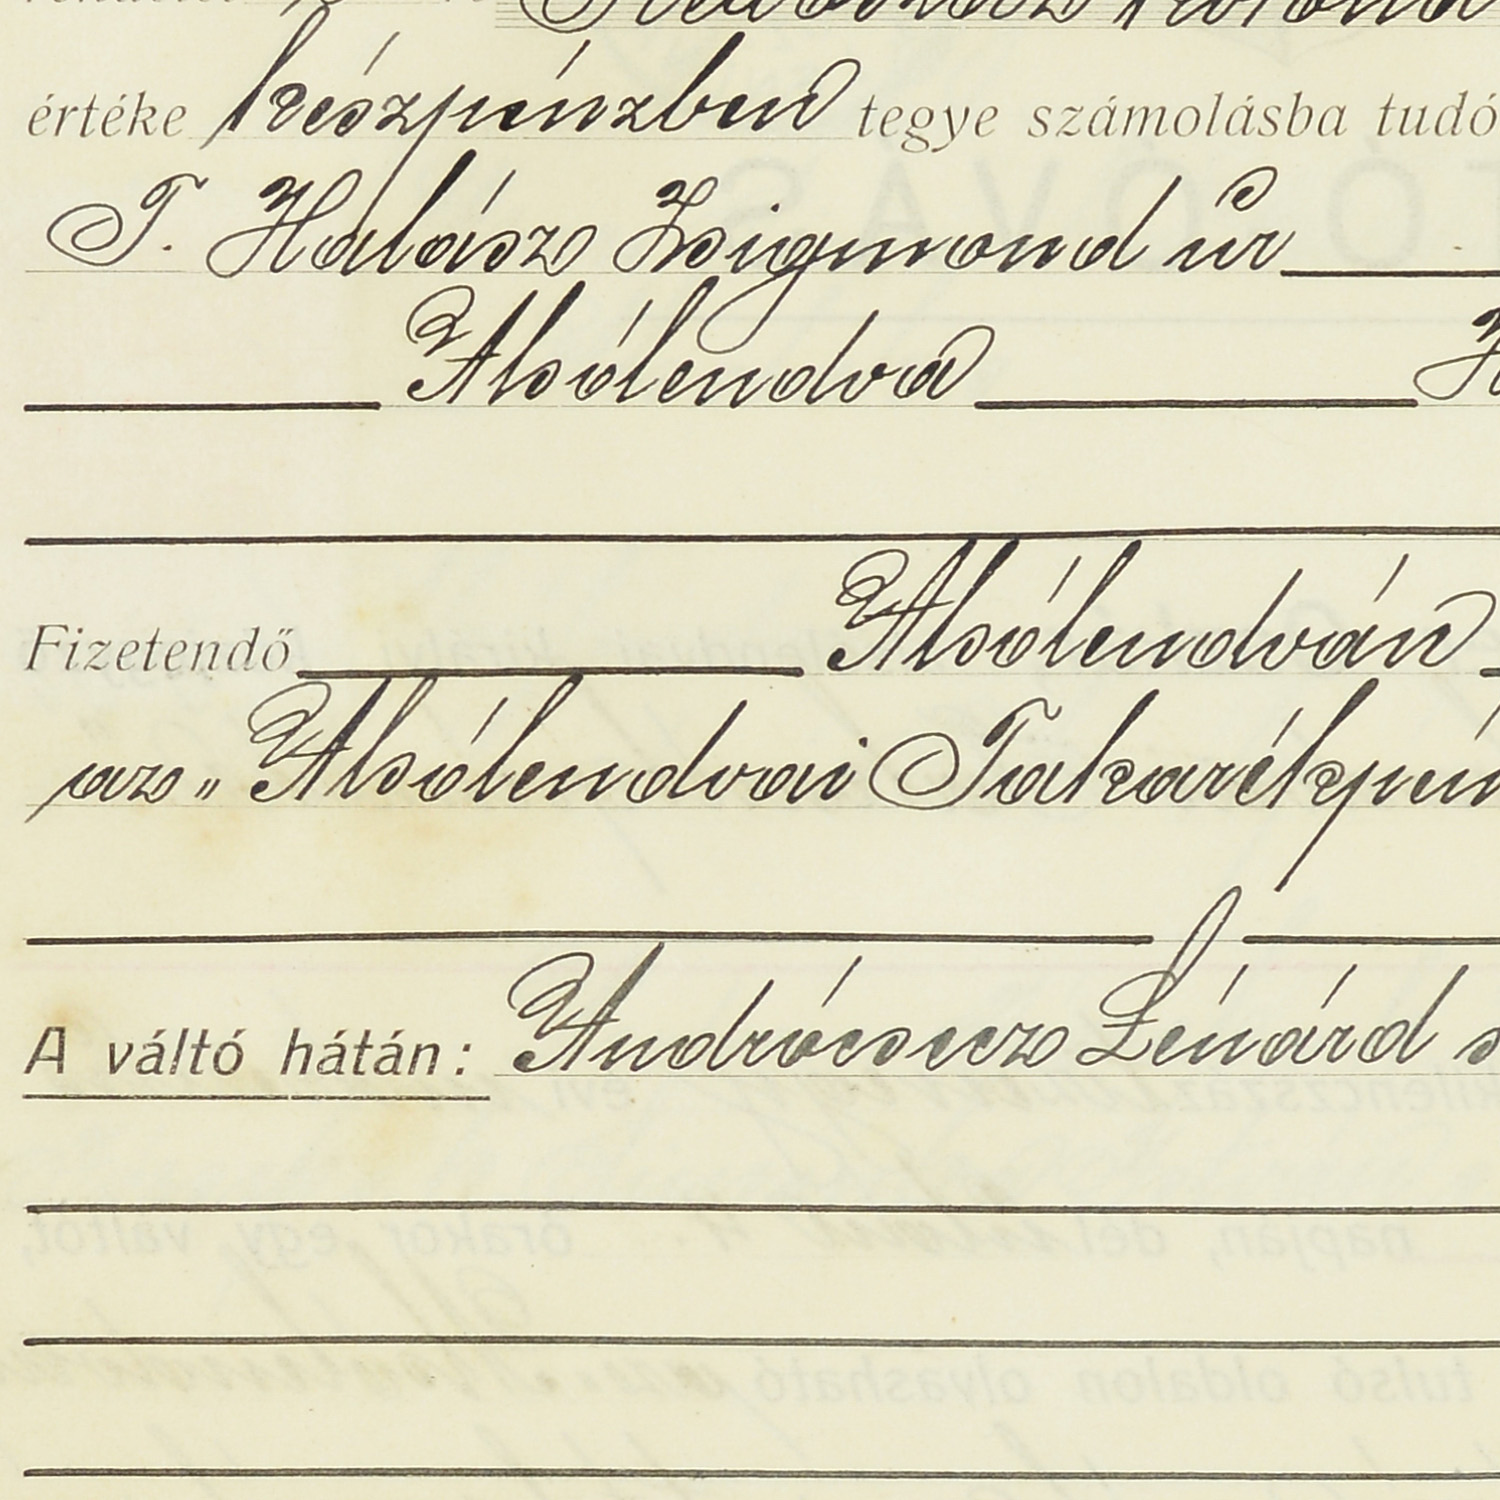 értéke készpénzben tegye számolásba tudó
T. Halász Zsigmond úr
Alsólendva
Fizetendő Alsólendván
az „Alsólendvai Takarékpén
A váltó hátán: Andrócsecz Lénárd s